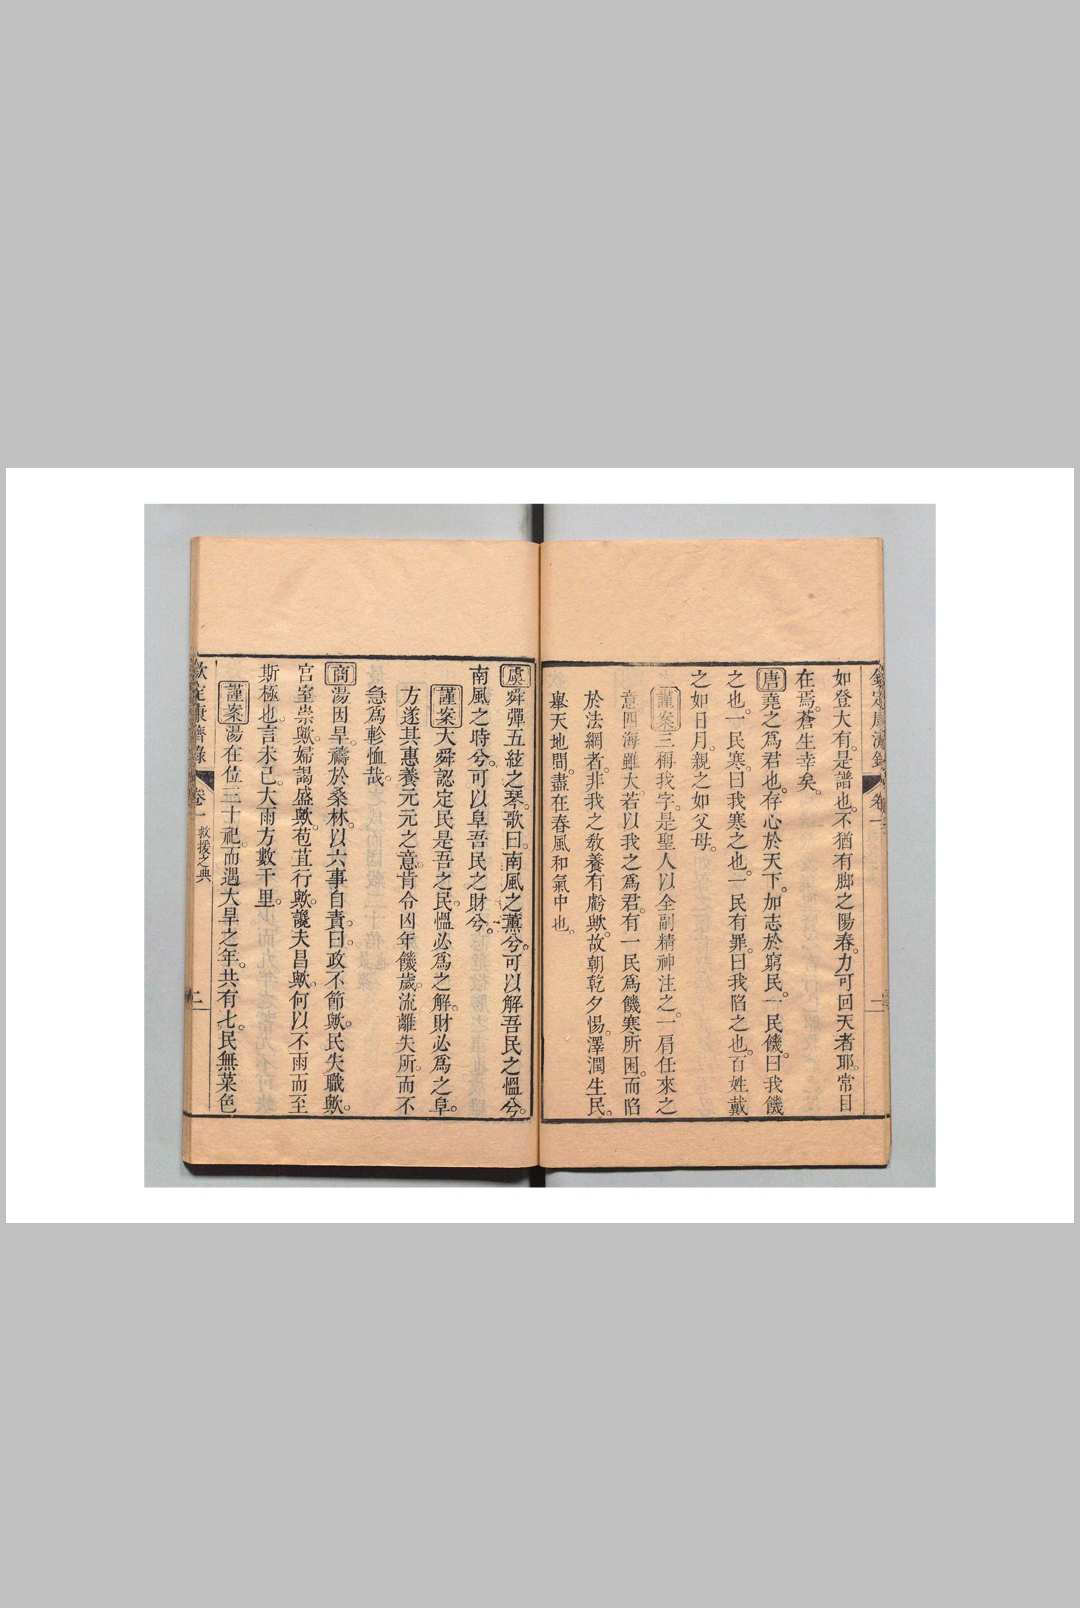 欽定康濟錄 卷一
如登大有。是譜也。不猶有脚之陽春。力可回天者耶。常日
在焉。蒼生幸矣。
唐堯之爲君也。存心於天下。加志於窮民。一民饑。曰我饑
之也。一民寒。曰我寒之也。一民有罪。曰我陷之也。百姓戴
之如日月。親之如父母。
謹案三稱我字。是聖人以全副精神注之。一肩任來之
意四海雖大。若以我之爲君。有一民爲饑寒所困。而陷
於法網者。非我之敎養有虧歟。故朝乾夕惕。澤潤生民。
舉天地間。盡在春風和氣中也。
虞舜彈五絃之琴。歌曰。南風之薰兮。可以解吾民之慍兮。
南風之時兮。可以阜吾民之財兮。
謹案大舜認定民是吾之民。慍必爲之解。財必爲之阜。
方遂其惠養元元之意。肯令凶年饑歲。流離失所。而不
急爲軫恤哉。
商湯因旱。禱於桑林。以六事自責。曰政不節歟。民失職歟。
宮室崇歟。婦謁盛歟。苞苴行歟。讒夫昌歟。何以不雨而至
斯極也。言未已。大雨方數千里。
謹案湯在位三十祀。而遇大旱之年。共有七。民無菜色
欽定康濟錄 卷一 救援之典 二